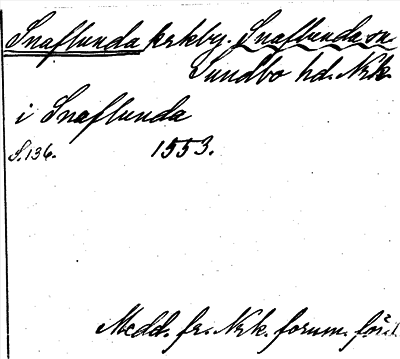 Snaflunda krkby. Snaflunda sn.
Sundbo hd. Nrk.
i Snaflunda
S. 136. 1553.
Medd. fr. Nrk. fornm. för.